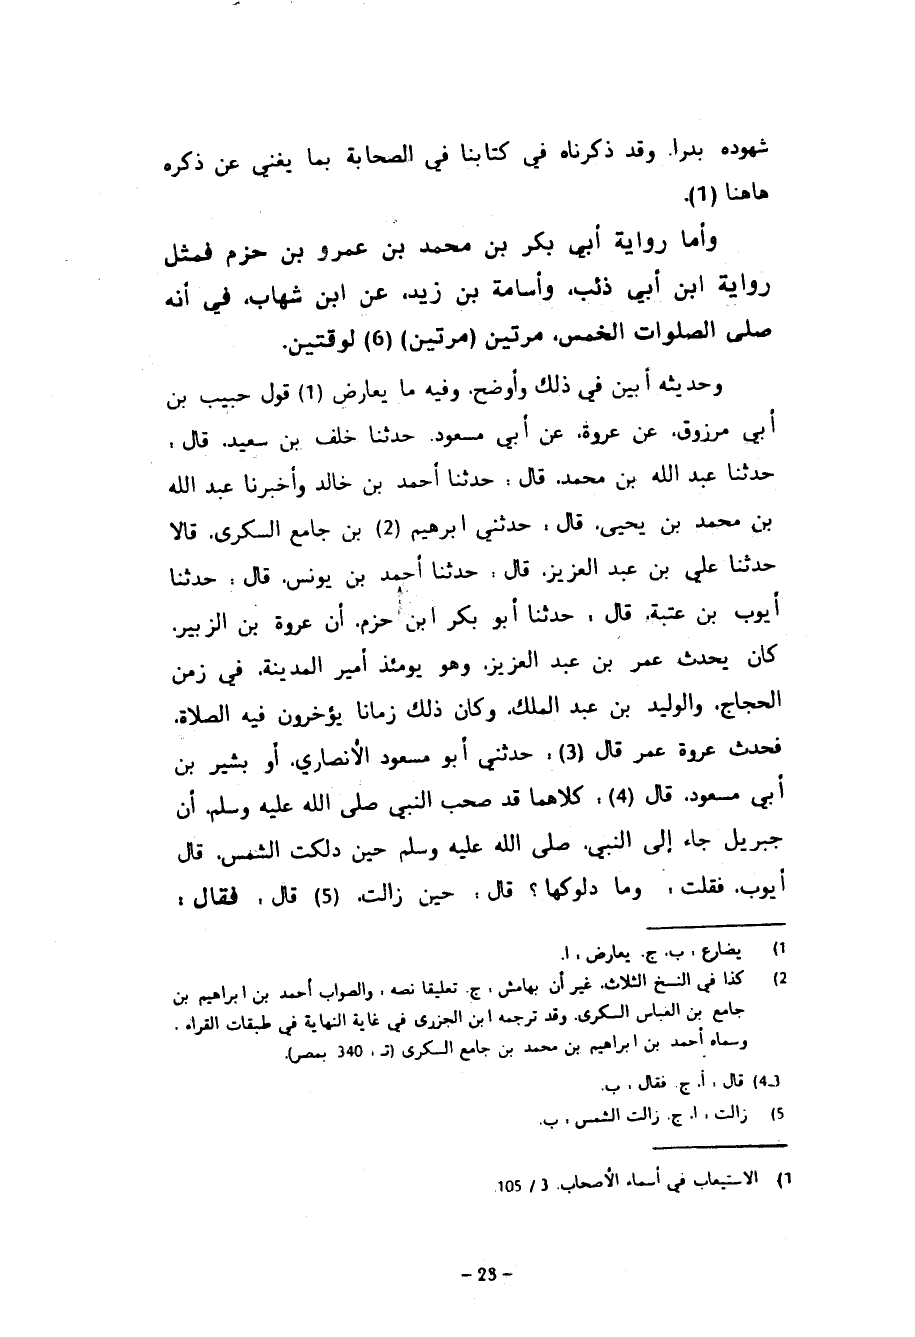 شهوده بدرا. وقد ذكرناه في كتابنا في الصحابة بما يغني عن ذكره
هاهنا (1).
وأما رواية أبي بكر بن محمد بن عمرو بن حزم فمثل
رواية ابن أبي ذئب، وأسامة بن زيد، عن ابن شهاب، في أنه
صلى الصلوات الخمس، مرتين (مرتين) (6) لوقتين.
وحديثه أبين في ذلك وأوضح، وفيه ما يعارض (1) قول حبيب بن
أبي مرزوق، عن عروة، عن أبي مسعود. حدثنا خلف بن سعيد، قال :
حدثنا عبد الله بن محمد، قال : حدثنا أحمد بن خالد وأخبرنا عبد الله
بن محمد بن يحيى، قال : حدثني ابرهيم (2) بن جامع السكرى، قالا
حدثنا علي بن عبد العزيز، قال : حدثنا أحمد بن يونس، قال : حدثنا
أيوب بن عتبة، قال : حدثنا أبو بكر ابن حزم، أن عروة بن الزبير،
كان يحدث عمر بن عبد العزيز، وهو يومئذ أمير المدينة، في زمن
الحجاج، والوليد بن عبد الملك، وكان ذلك زمانا يؤخرون فيه الصلاة،
فحدث عروة عمر قال (3) : حدثني أبو مسعود الأنصاري، أو بشير بن
أبي مسعود، قال (4) : كلاهما قد صحب النبي صلى الله عليه وسلم، أن
جبريل جاء إلى النبي، صلى الله عليه وسلم حين دلكت الشمس، قال
أيوب، فقلت : وما دلوكها ؟ قال : حين زالت، (5) قال : فقال :
1) يضارع : ب، ج. يعارض : ا.
2) كذا في النسخ الثلاث، غير أن بهامش : ج. تعليقا نصه : والصواب أحمد بن ابراهيم بن
جامع بن العباس السكرى، وقد ترجمه ابن الجزرى في غاية النهاية في طبقات القراء .
وسماه أحمد بن ابراهيم بن محمد بن جامع السكرى (تـ : 340 بمصر).
3ـ4) قال : أ. ج. فقال : ب.
5) زالت : ا. ج. زالت الشمس : ب.
1) الاستيعاب في أسماء الأصحاب. 3 / 105.
- 23 -